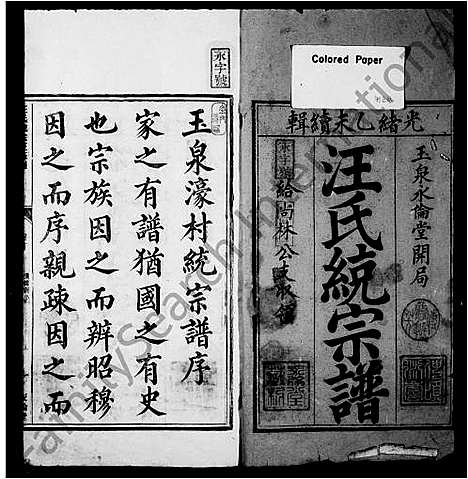 Colored Paper
光緒乙未續輯
玉泉水倫堂開局
汪氏統宗譜
永字號
給尚林公支收領
永字號
玉泉濠村統宗譜序
家之有譜猶國之有史
也宗族因之而辨昭穆
因之而序親疎因之而
FamilySearch International